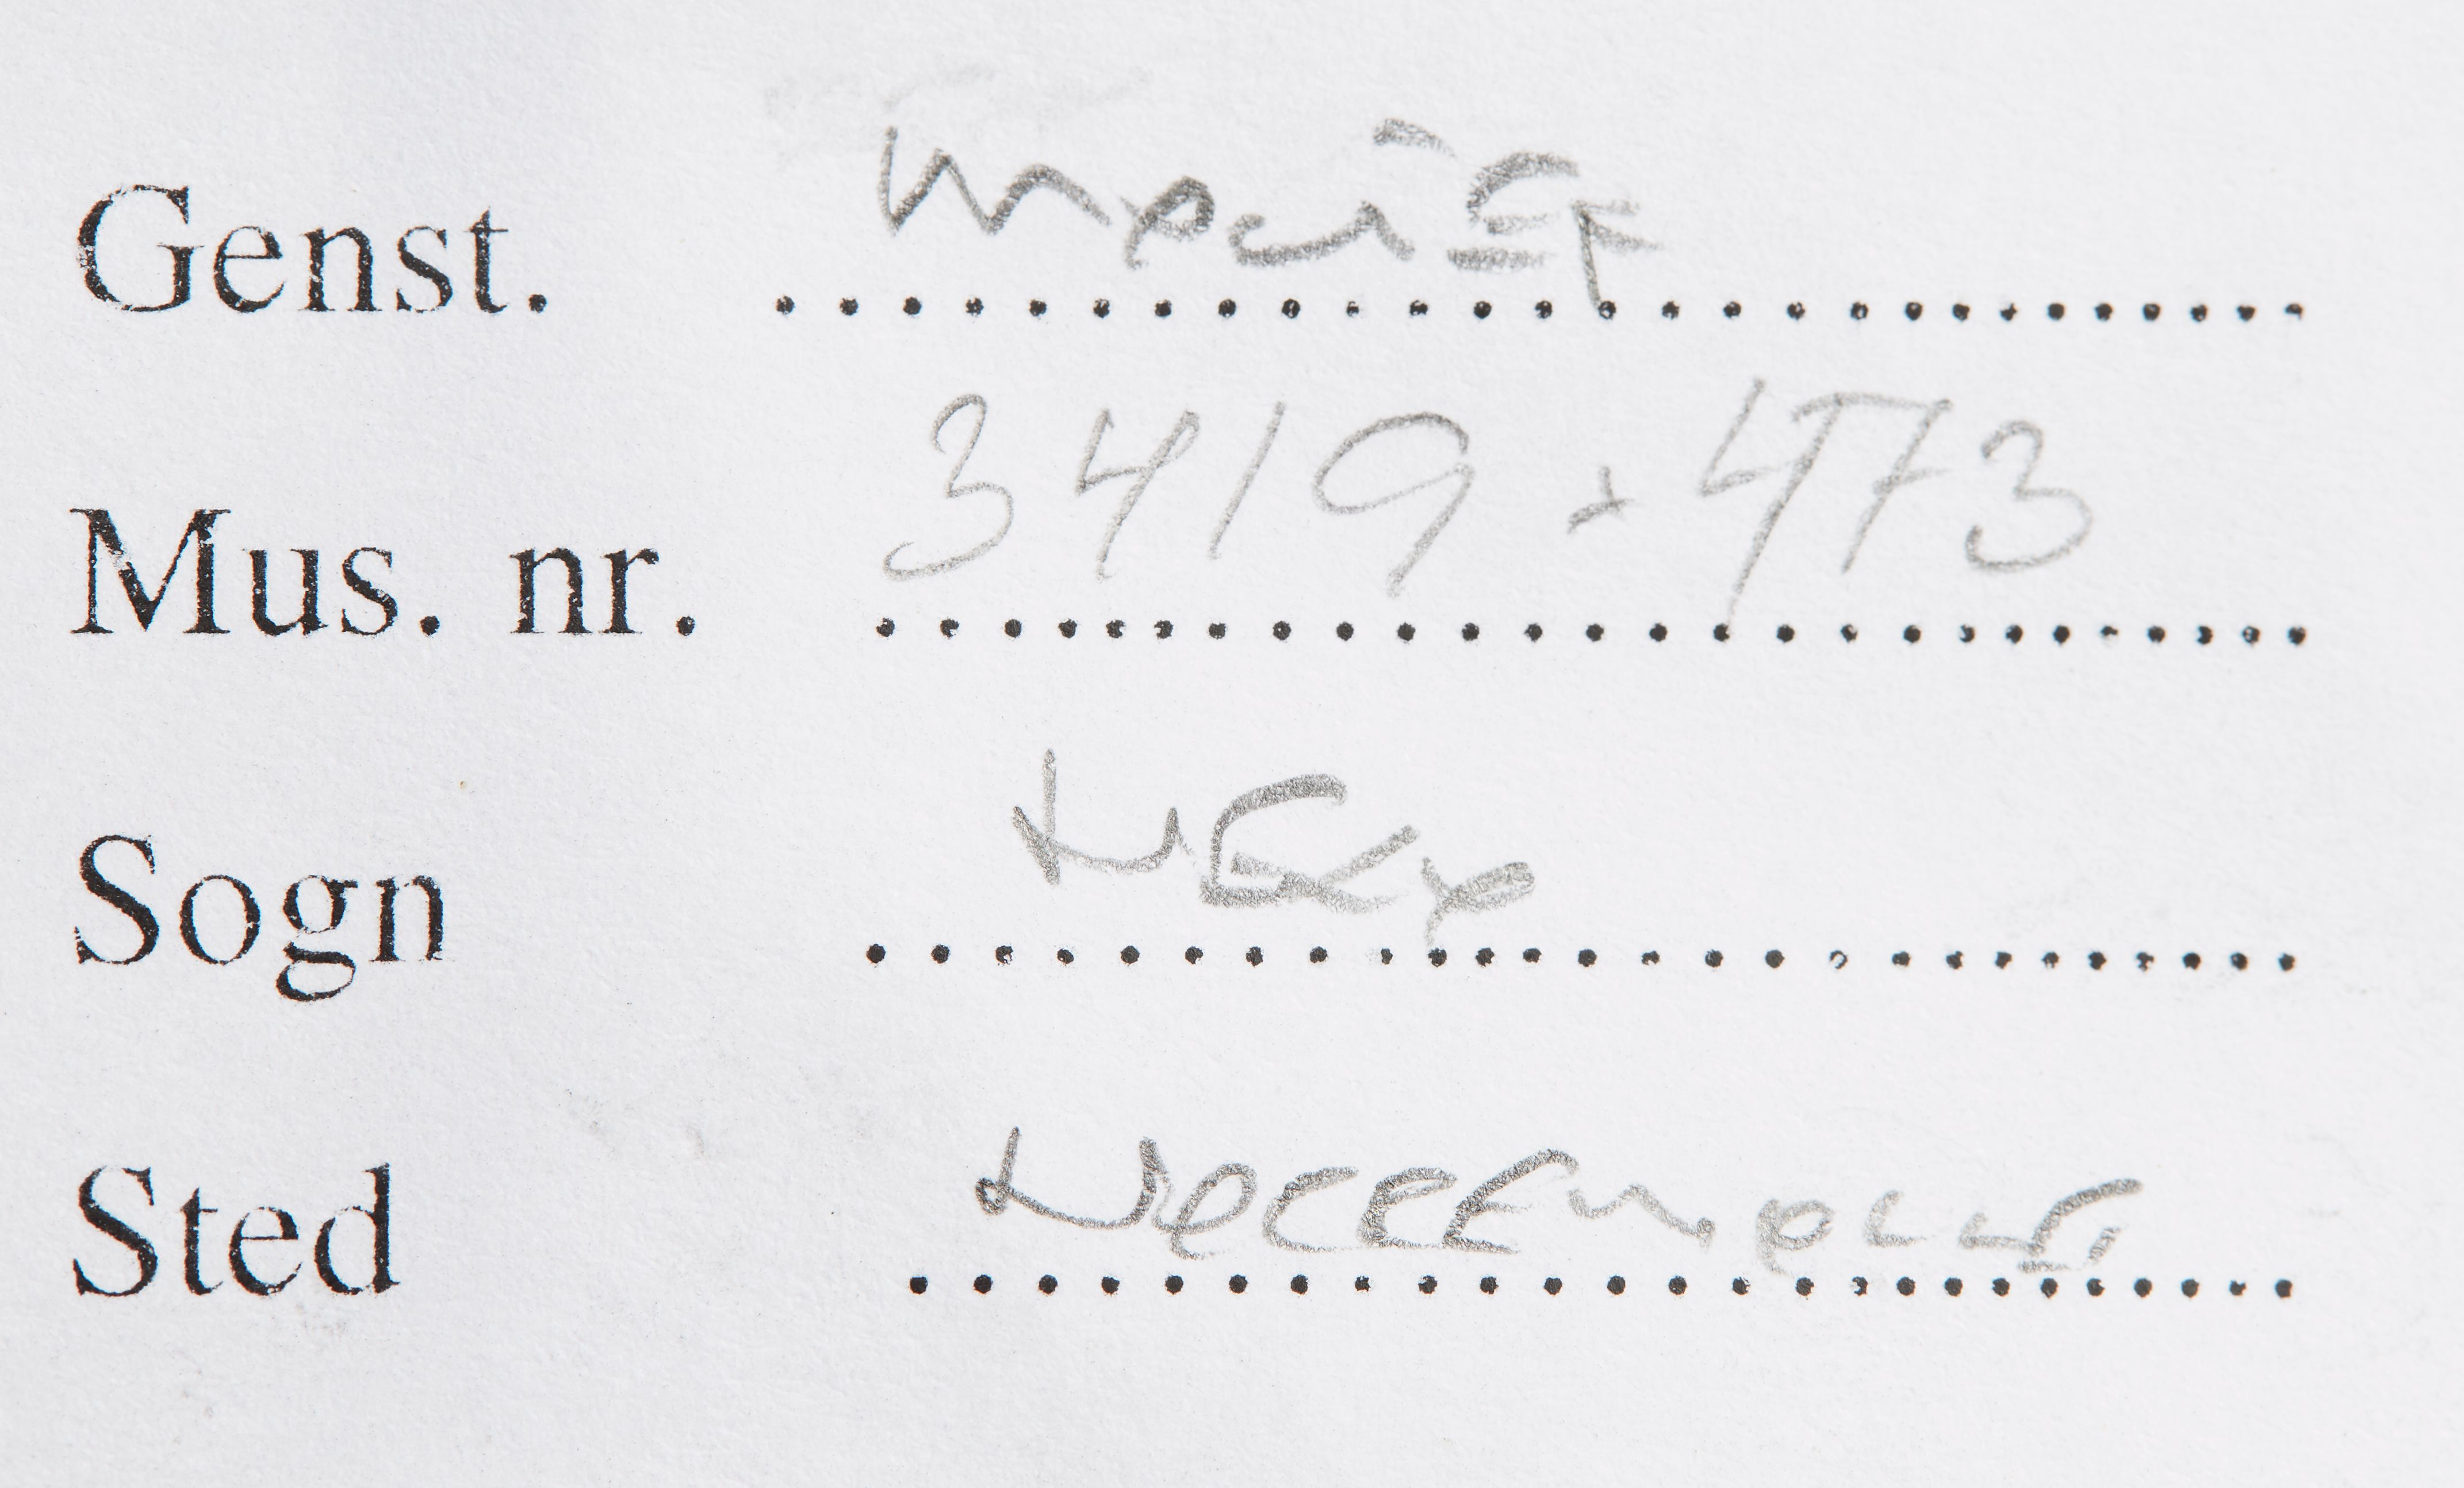 Genst.
Mus. nr. 3419 x 473
Sogn NEXØ
Sted